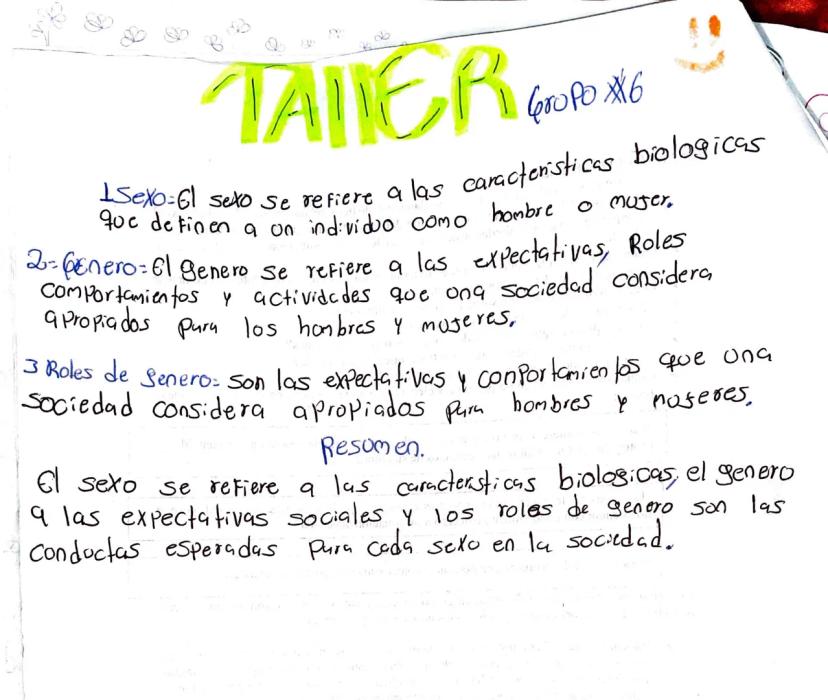 TAllER Grupo #6
1 Sexo= El sexo se refiere a las caracteristicas biologicas
que definen a un individuo como hombre o mujer.
2= Genero= El genero se refiere a las expectativas, Roles
comportamientos y actividades que una sociedad considera
apropiados para los honbres y mujeres.
3 Roles de genero= son las expectativas y conportamientos que una
sociedad considera apropiados para hombres y mujeres.
Resumen.
El sexo se refiere a las caracteristicas biologicas, el genero
a las expectativas sociales y los roles de genero son las
conductas esperadas para cada sexo en la sociedad.